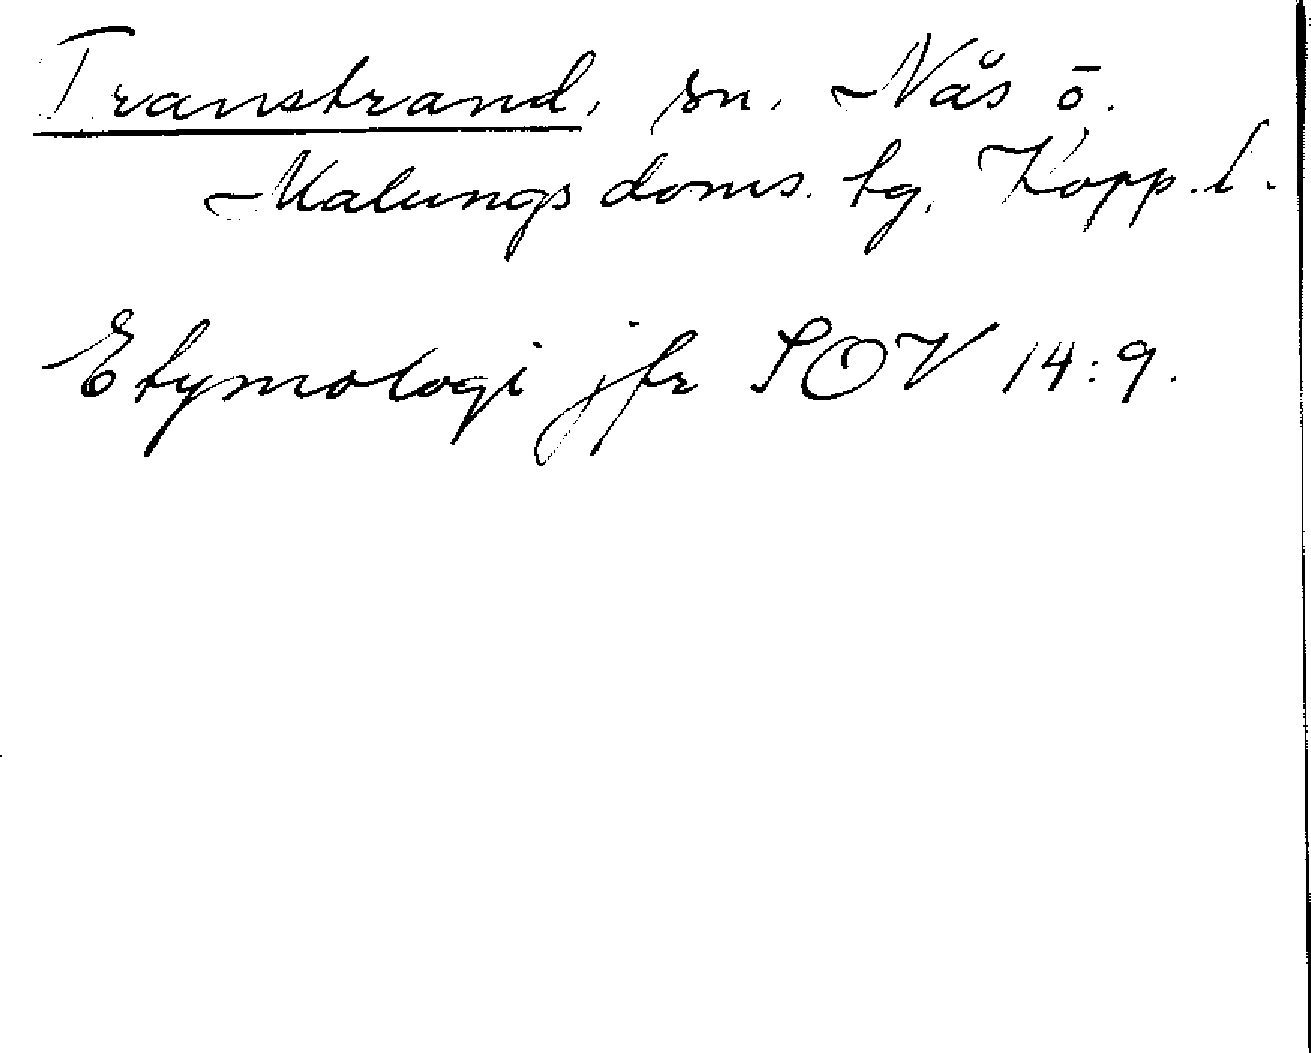 Transtrand, sn. Nås ö.
Malungs doms. tg. Kopp. l.
Etymologi jfr SOV 14:9.